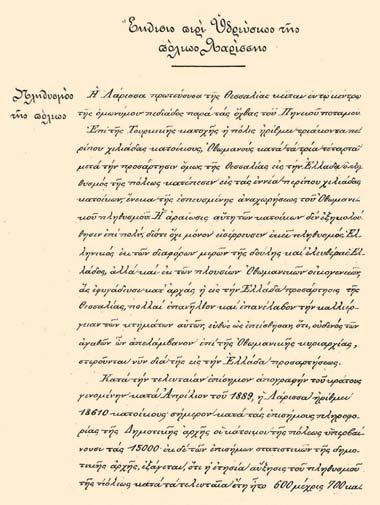 Ἔκθεσις περὶ Ὑδρεύσεως τῆς
πόλεως Λαρίσσης
Πληθυσμὸς
τῆς πόλεως
Ἡ Λάρισσα πρωτεύουσα τῆς Θεσσαλίας κεῖται ἐν τῷ κέντρῳ
τῆς ὁμωνύμου πεδιάδος παρὰ τὰς ὄχθας τοῦ Πηνειοῦ ποταμοῦ.
Ἐπὶ τῆς Τουρκικῆς κατοχῆς ἡ πόλις ἠρίθμει τριάκοντα πε-
ρίπου χιλιάδας κατοίκους, Ὀθωμανοὺς κατὰ τὰ τρία τέταρτα
μετὰ τὴν προσάρτησιν ὅμως τῆς Θεσσαλίας εἰς τὴν Ἑλλάδα ὁ πλη-
θυσμὸς τῆς πόλεως κατέπεσεν εἰς τὰς ἐννέα περίπου χιλιάδας
κατοίκων, ἕνεκα τῆς ἐσπευσμένης ἀναχωρήσεως τοῦ Ὀθωμανι-
κοῦ πληθυσμοῦ. Ἡ ἀραίωσις αὕτη τῶν κατοίκων δὲν ἐξηκολού-
θησεν ἐπὶ πολύ, διότι ὄχι μόνον εἰσέρρευσεν ἐκεῖ πληθυσμὸς Ἑλ-
ληνικὸς ἐκ τῶν διαφόρων μερῶν τῆς δούλης καὶ ἐλευθέρας Ἑλ-
λάδος, ἀλλὰ καὶ ἐκ τῶν πλουσίων Ὀθωμανικῶν οἰκογενειῶν,
ἃς ἐφυγάδευσε κατ' ἀρχὰς ἡ εἰς τὴν Ἑλλάδα προσάρτησις τῆς
Θεσσαλίας, πολλαὶ ἐπανῆλθον καὶ ἐπανέλαβον τὴν καλλιέρ-
γειαν τῶν κτημάτων αὐτῶν, εὐθὺς ὡς ἐπείσθησαν ὅτι, οὐδενὸς τῶν
ἀγαθῶν ὧν ἀπελάμβανον ἐπὶ τῆς Ὀθωμανικῆς κυριαρχίας,
στεροῦνται νῦν διὰ τῆς εἰς τὴν Ἑλλάδα προσαρτήσεως.
Κατὰ τὴν τελευταίαν ἐπίσημον ἀπογραφὴν τοῦ κράτους
γενομένην κατ' Ἀπρίλιον τοῦ 1889, ἡ Λάρισσα ἠρίθμει
13610 κατοίκους· σήμερον κατὰ τὰς ἐπισήμους πληροφο-
ρίας τῆς Δημοτικῆς ἀρχῆς οἱ κάτοικοι τῆς πόλεως ὑπερβαί-
νουσι τὰς 15000 ἐκ δὲ τῶν ἐπισήμων στατιστικῶν τῆς δημο-
τικῆς ἀρχῆς, ἐξάγεται, ὅτι ἡ ἐτησία αὔξησις τοῦ πληθυσμοῦ
τῆς πόλεως κατὰ τὰ τελευταῖα ἔτη ἦτο 600 μέχρις 700 καὶ